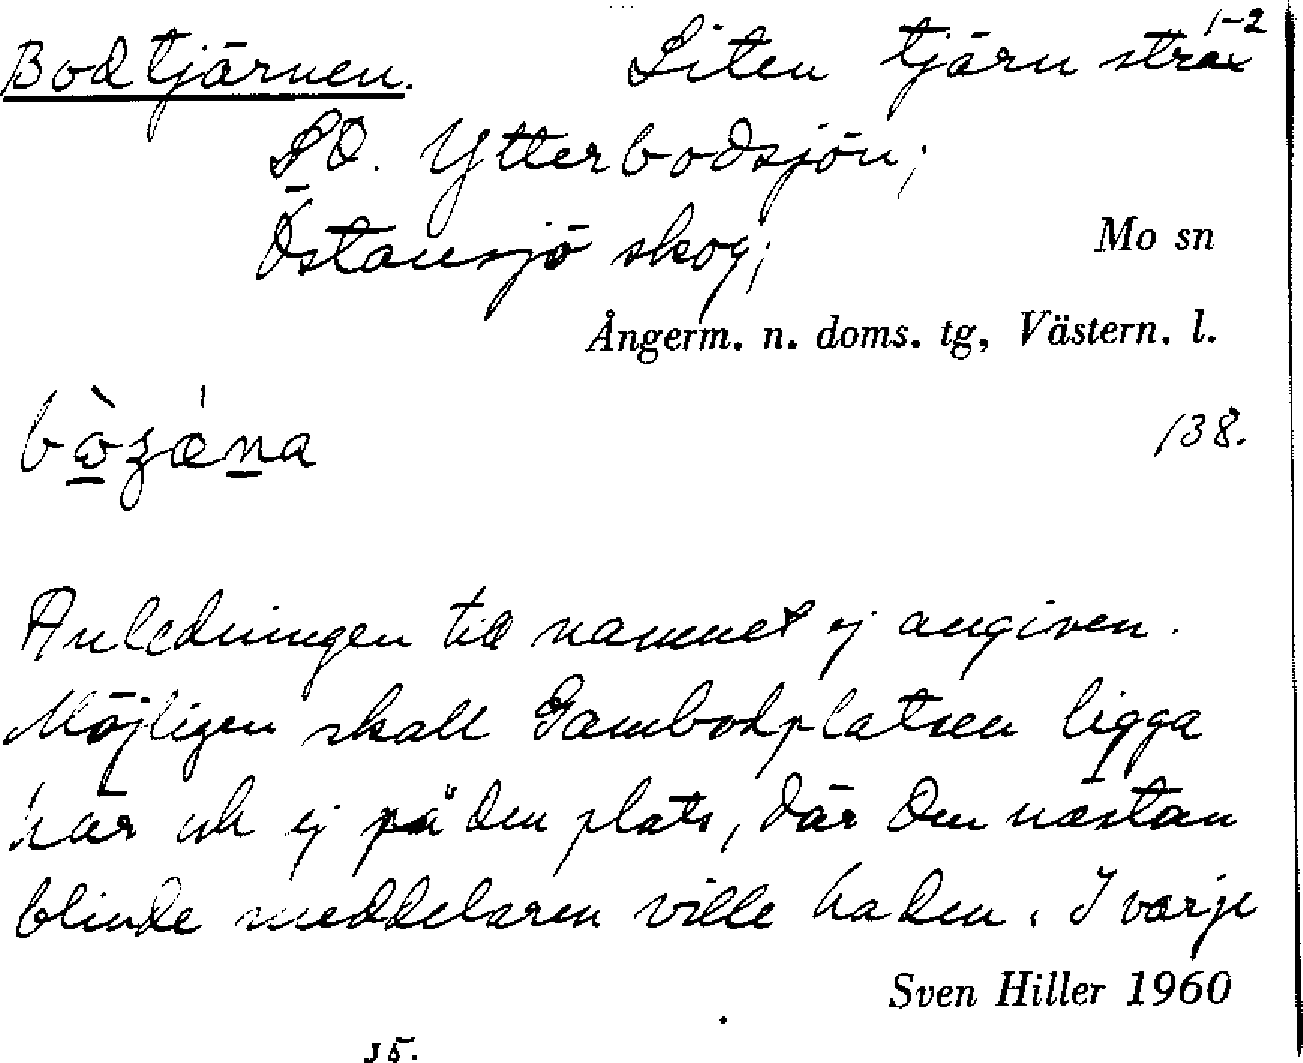 1-2
Bodtjärnen. Liten tjärn strax
SO. Ytterbodsjön;
Östansjö skog; Mo sn
Ångerm. n. doms. tg, Västern. l.
138.
Anledningen till namnet ej angiven.
Möjligen skall Gambodplatsen ligga
här och ej på den plats, där den nästan
blinde meddelaren ville ha den. I varje
Sven Hiller 1960
15.